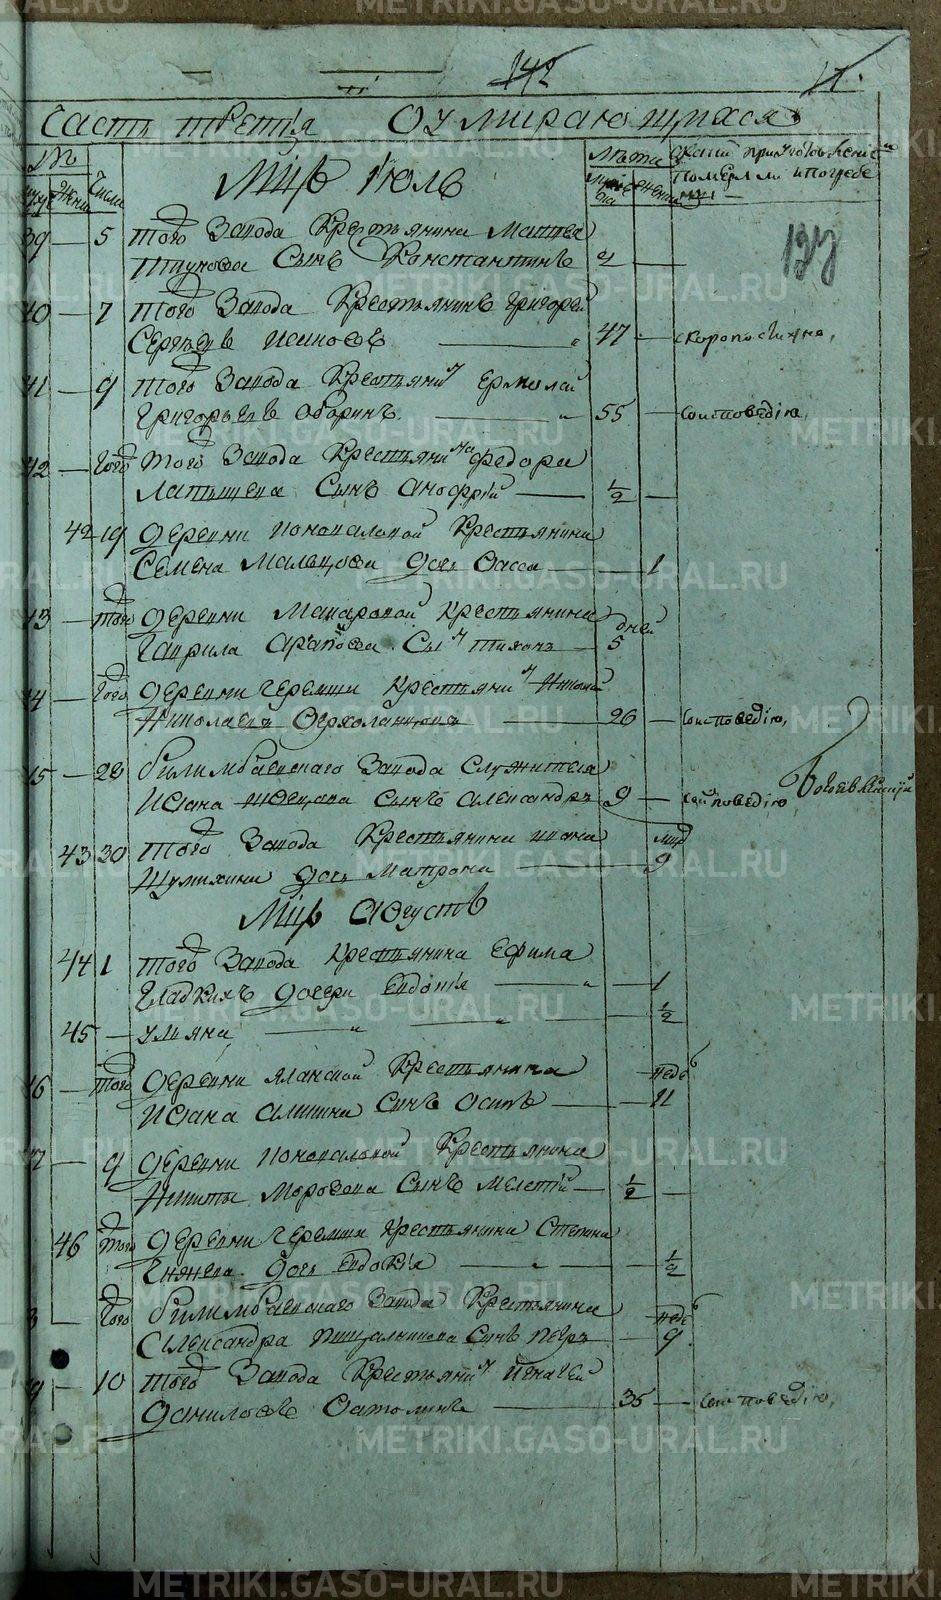 142
Часть третія О умирающихся
№
Числа
Мцъ Іюль
Лѣта
какимъ приуготовленіем
померли и погребе
ны
137
39 — 5 того Завода Крестьянина Матвея
Сынъ Константинъ 2 —
40 — 7 того Завода Крестьянинъ Григорей
Сергѣевъ 47 — скоропостижно,
41 — 9 того Завода Крестьянинъ Ермолай
Григорьевъ Оборинъ 55 — соисповедію,
42 — того того Завода Крестьянина Федора
Латышева Сынъ Анофрій — 1/2 —
42 19 деревни Коноваловой Крестьянина
Семена Мальцова дочь Васса — 1
43 — того деревни Макаровой Крестьянина
Гаврила Арапова Сынъ Тихонъ — дней 5
44 — того деревни Черемши Крестьянинъ
Николаевъ Верхоланцовъ — 26 — соисповедію,
45 — 22 Билимбаевскаго Завода Служителя
Ивана Швецова сынъ Александръ 9 — соисповедію
43 30 того Завода Крестьянина Ивана
Шумихина дочь Матрона — 9
Мцъ Августъ
44 1 того Завода Крестьянина Ефима
Гладкихъ дочери Евдокія — 1
45 — Ульяна — 1/2
46 — того деревни Крестьянина
Ивана Алипина Сынъ Осипъ — недѣ 11
47 — 9 деревни Коноваловой Крестьянина
Никиты Морозова Сынъ Мелетій — 1/2 —
46 того деревни Черемши Крестьянина Степана
дочь Евдокія — 1/2
того Билимбаевскаго Завода Крестьянина
Александра Пищальникова Сынъ Петръ — недѣ 9
— 10 того Завода Крестьянинъ Игнатей
Даниловъ Ватолинъ — 35 — соисповедію,
METRIKI.GASO-URAL.RU